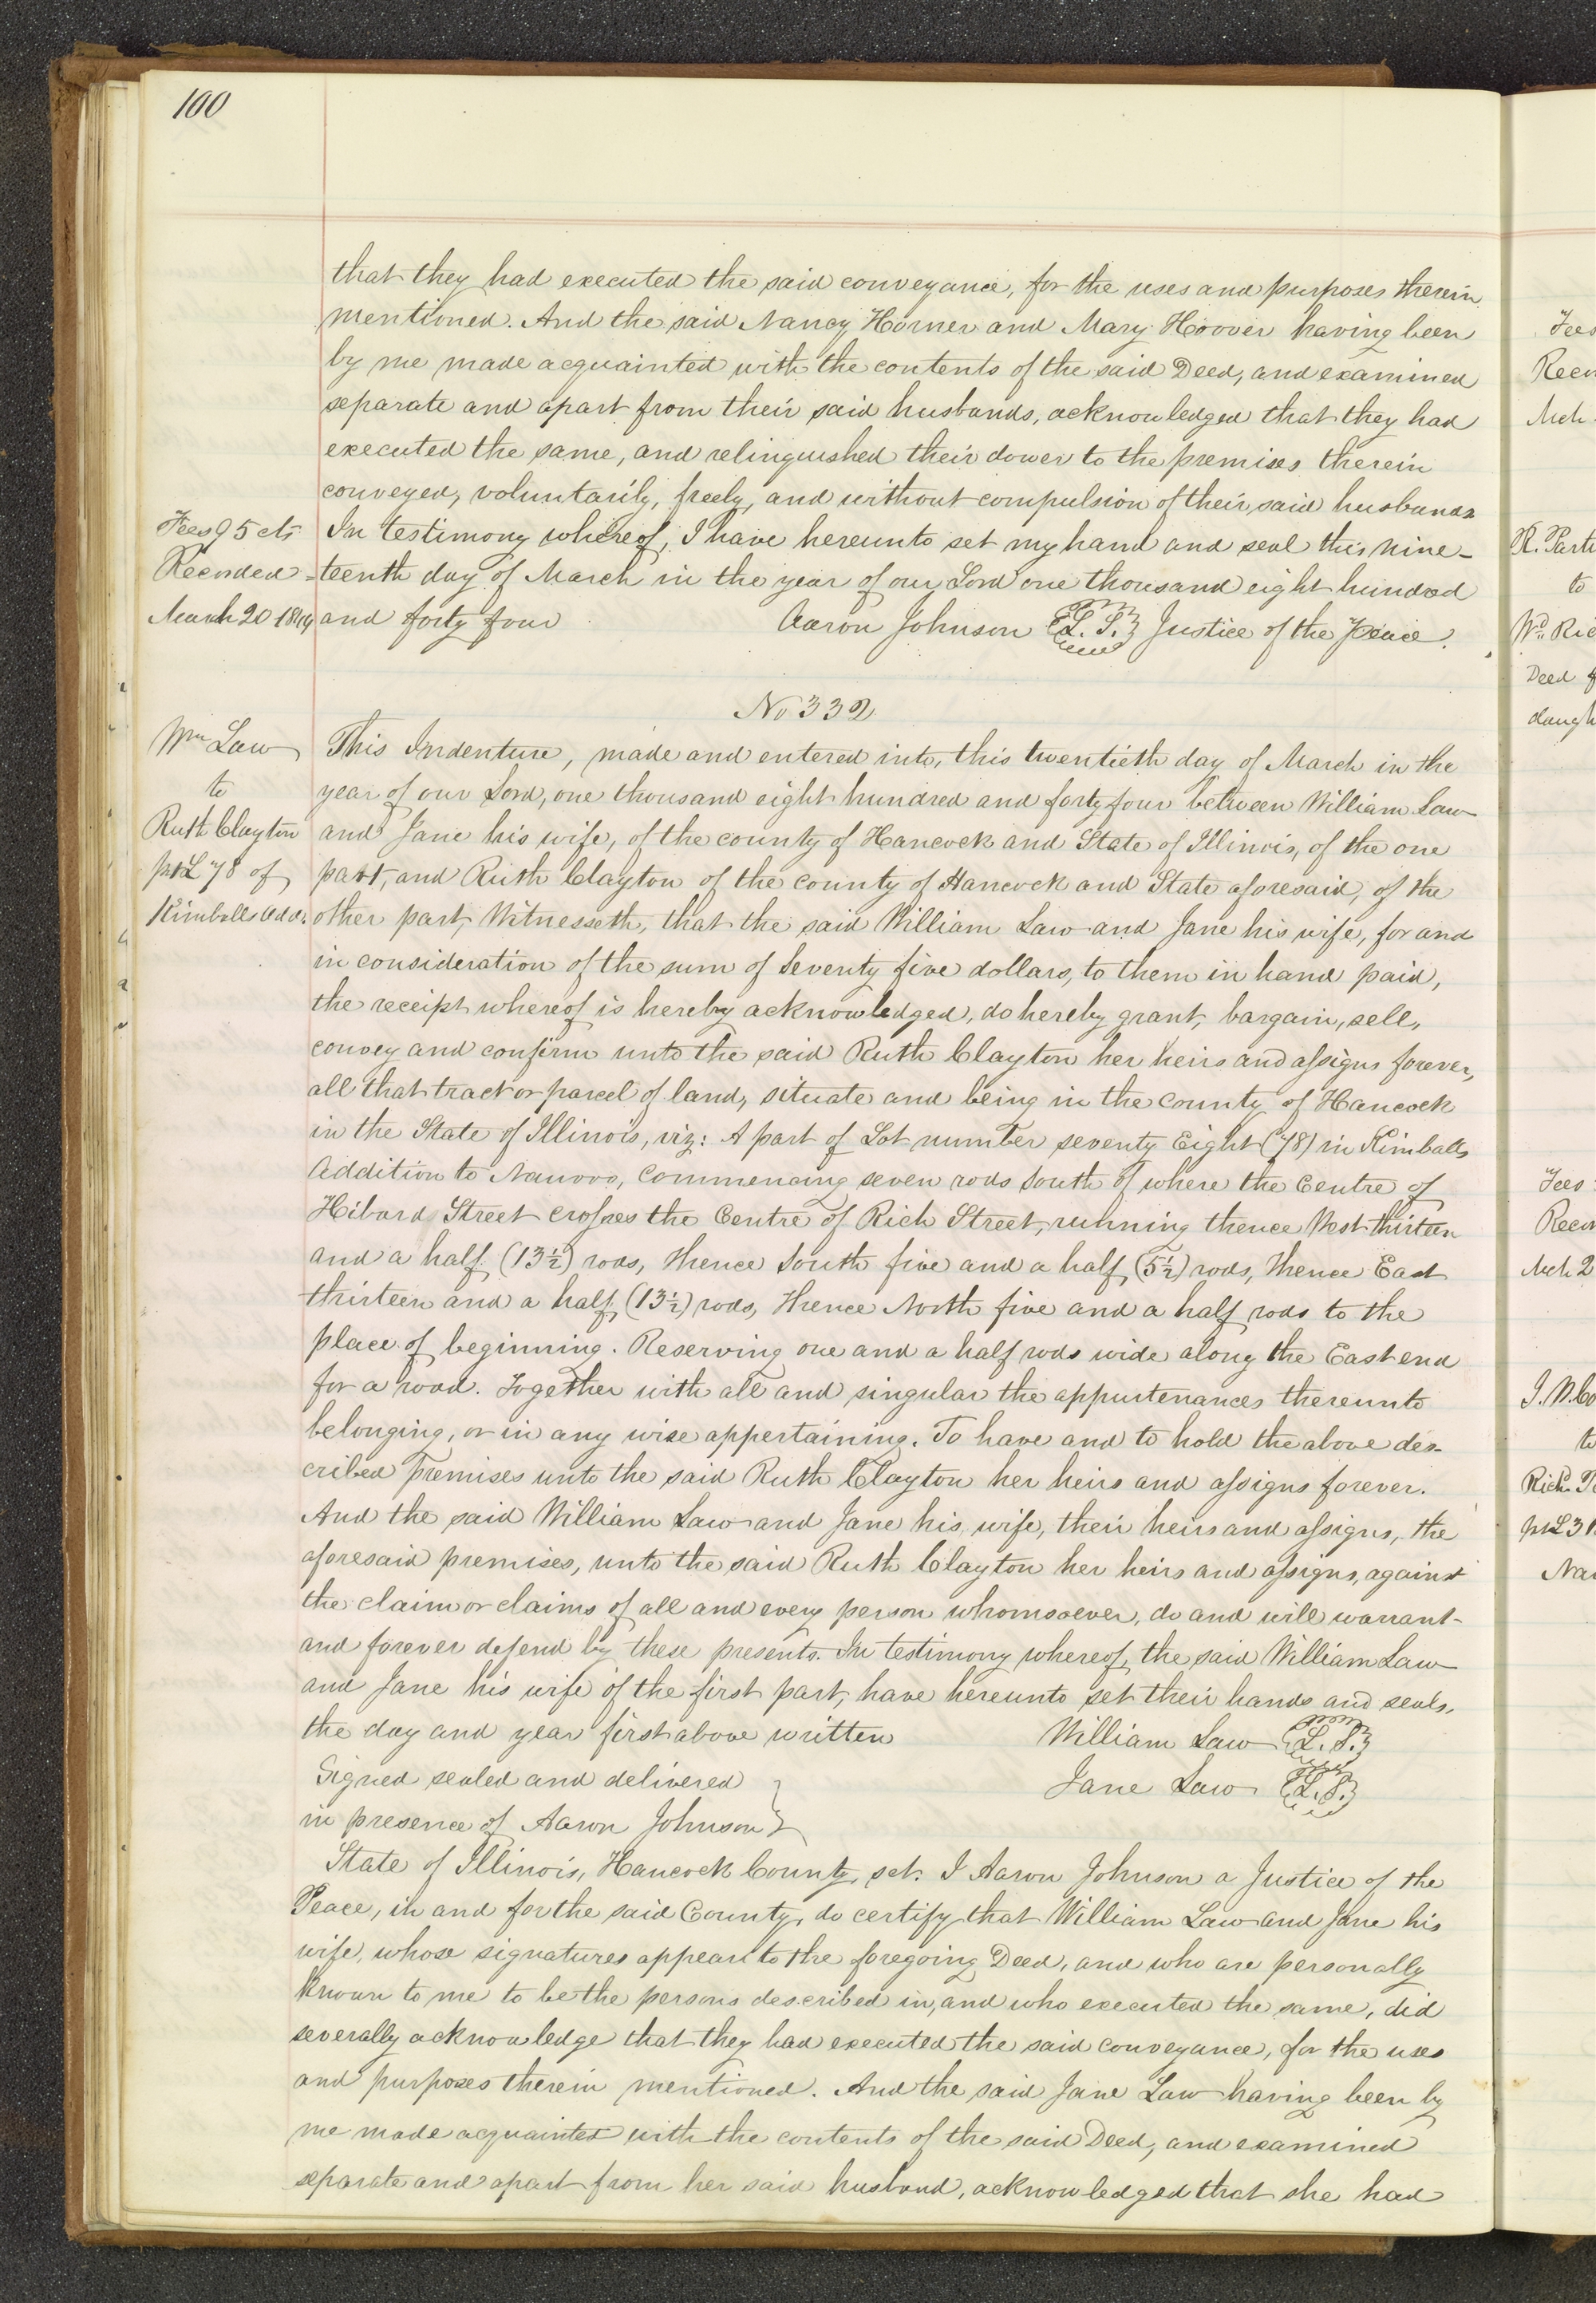 100
that they had executed the said conveyance, for the uses and purposes therein
mentioned. And the said Nancy Horner and Mary Hoover having been
by me made acquainted with the contents of the said Deed, and examined
separate and apart from their said husbands, acknowledged that they had
executed the same, and relinquished their dower to the premises therein
conveyed, voluntarily, freely, and without compulsion of their said husbands
Fees 95 cts
In testimony whereof, I have hereunto set my hand and seal this nine-
Recorded
teenth day of March in the year of our Lord one thousand eight hundred
March 20 1844
and forty four Aaron Johnson L. S. Justice of the Peace.
No 332
Wm Law
to
Ruth Clayton
pt L 78 of
Kimballs Addn.
This Indenture, made and entered into, this twentieth day of March in the
year of our Lord, one thousand eight hundred and forty four between William Law
and Jane his wife, of the county of Hancock and State of Illinois, of the one
part, and Ruth Clayton of the county of Hancock and State aforesaid, of the
other part, Witnesseth, that the said William Law and Jane his wife, for and
in consideration of the sum of Seventy five dollars, to them in hand paid,
the receipt whereof is hereby acknowledged, do hereby grant, bargain, sell,
convey and confirm unto the said Ruth Clayton her heirs and assigns forever,
all that tract or parcel of land, situate and being in the county of Hancock
in the State of Illinois, viz: A part of Lot number seventy Eight (78) in Kimballs
Addition to Nauvoo, Commencing seven rods South of where the Centre of
Hibard Street crosses the Centre of Rich Street, running thence West thirteen
and a half (13½) rods, thence South five and a half (5½) rods, thence East
thirteen and a half (13½) rods, thence North five and a half rods to the
place of beginning. Reserving one and a half rods wide along the East end
for a road. Together with all and singular the appurtenances thereunto
belonging, or in any wise appertaining. To have and to hold the above des-
cribed premises unto the said Ruth Clayton her heirs and assigns forever.
And the said William Law and Jane his wife, their heirs and assigns, the
aforesaid premises, unto the said Ruth Clayton her heirs and assigns, against
the claim or claims of all and every person whomsoever, do and will warrant
and forever defend by these presents. In testimony whereof, the said William Law
and Jane his wife of the first part, have hereunto set their hands and seals,
the day and year first above written William Law L. S.
Signed sealed and delivered Jane Law L. S.
in presence of Aaron Johnson
State of Illinois, Hancock County, sct. I Aaron Johnson a Justice of the
Peace, in and for the said County, do certify that William Law and Jane his
wife, whose signatures appear to the foregoing Deed, and who are personally
known to me to be the persons described in, and who executed the same, did
severally acknowledge that they had executed the said conveyance, for the uses
and purposes therein mentioned. And the said Jane Law having been by
me made acquainted with the contents of the said Deed, and examined
separate and apart from her said husband, acknowledged that she had
Fees
R. Parti
to
Wm Ric
Deed
Fees
Mch 2
to
pt L 3